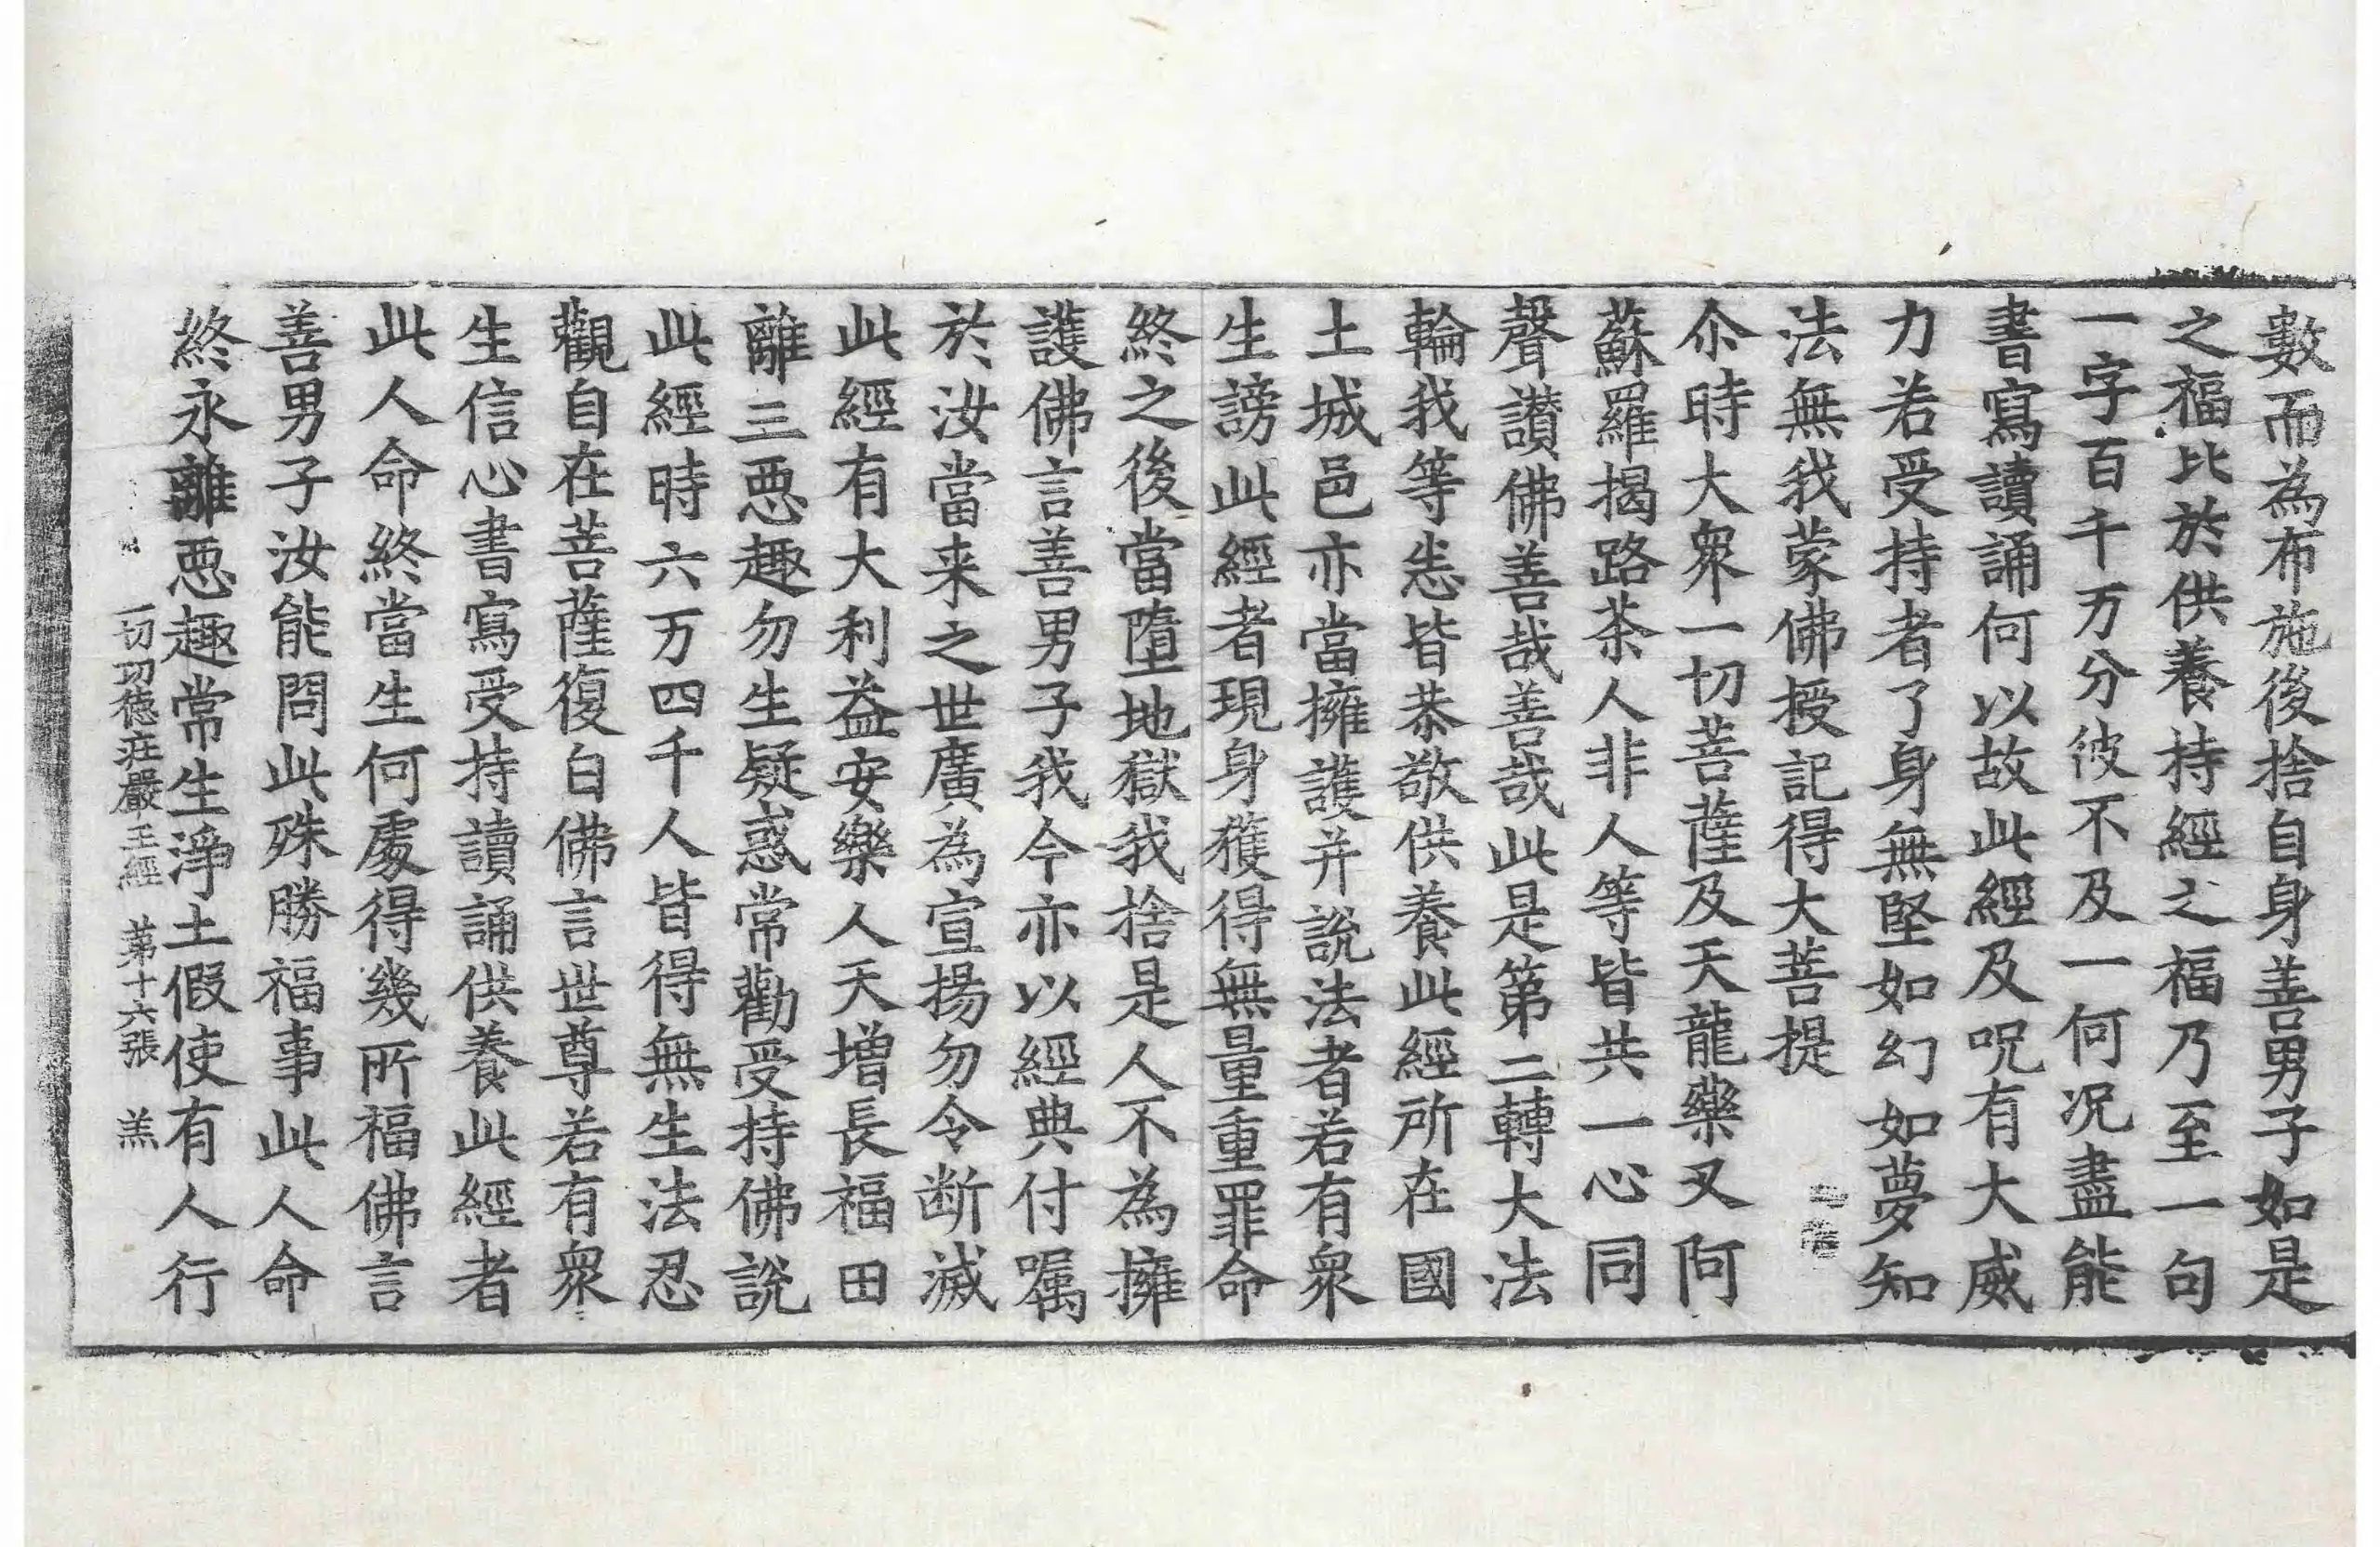 數而為布施後捨自身善男子如是
之福比於供養持經之福乃至一句
一字百千万分彼不及一何况盡能
書寫讀誦何以故此經及呪有大威
力若受持者了身無堅如幻如夢知
法無我蒙佛授記得大菩提
尒時大衆一切菩薩及天龍藥叉阿
蘇羅揭路茶人非人等皆共一心同
聲讃佛善哉善哉此是第二轉大法
輪我等恙皆恭敬供養此經所在國
土城邑亦當擁護并說法者若有衆
生謗此經者現身獲得無量重罪命
終之後當墮地獄我捨是人不為擁
護佛言善男子我今亦以經典付嘱
於汝當来之世廣為宣揚勿令断滅
此經有大利益安樂人天增長福田
離三惡趣勿生疑惑常勸受持佛說
此經時六万四千人皆得無生法忍
觀自在菩薩復白佛言世尊若有衆
生信心書寫受持讀誦供養此經者
此人命終當生何處得幾所福佛言
善男子汝能問此殊勝福事此人命
終永離惡趣常生淨土假使有人行
一切功德庄嚴王經 第十六張 羔